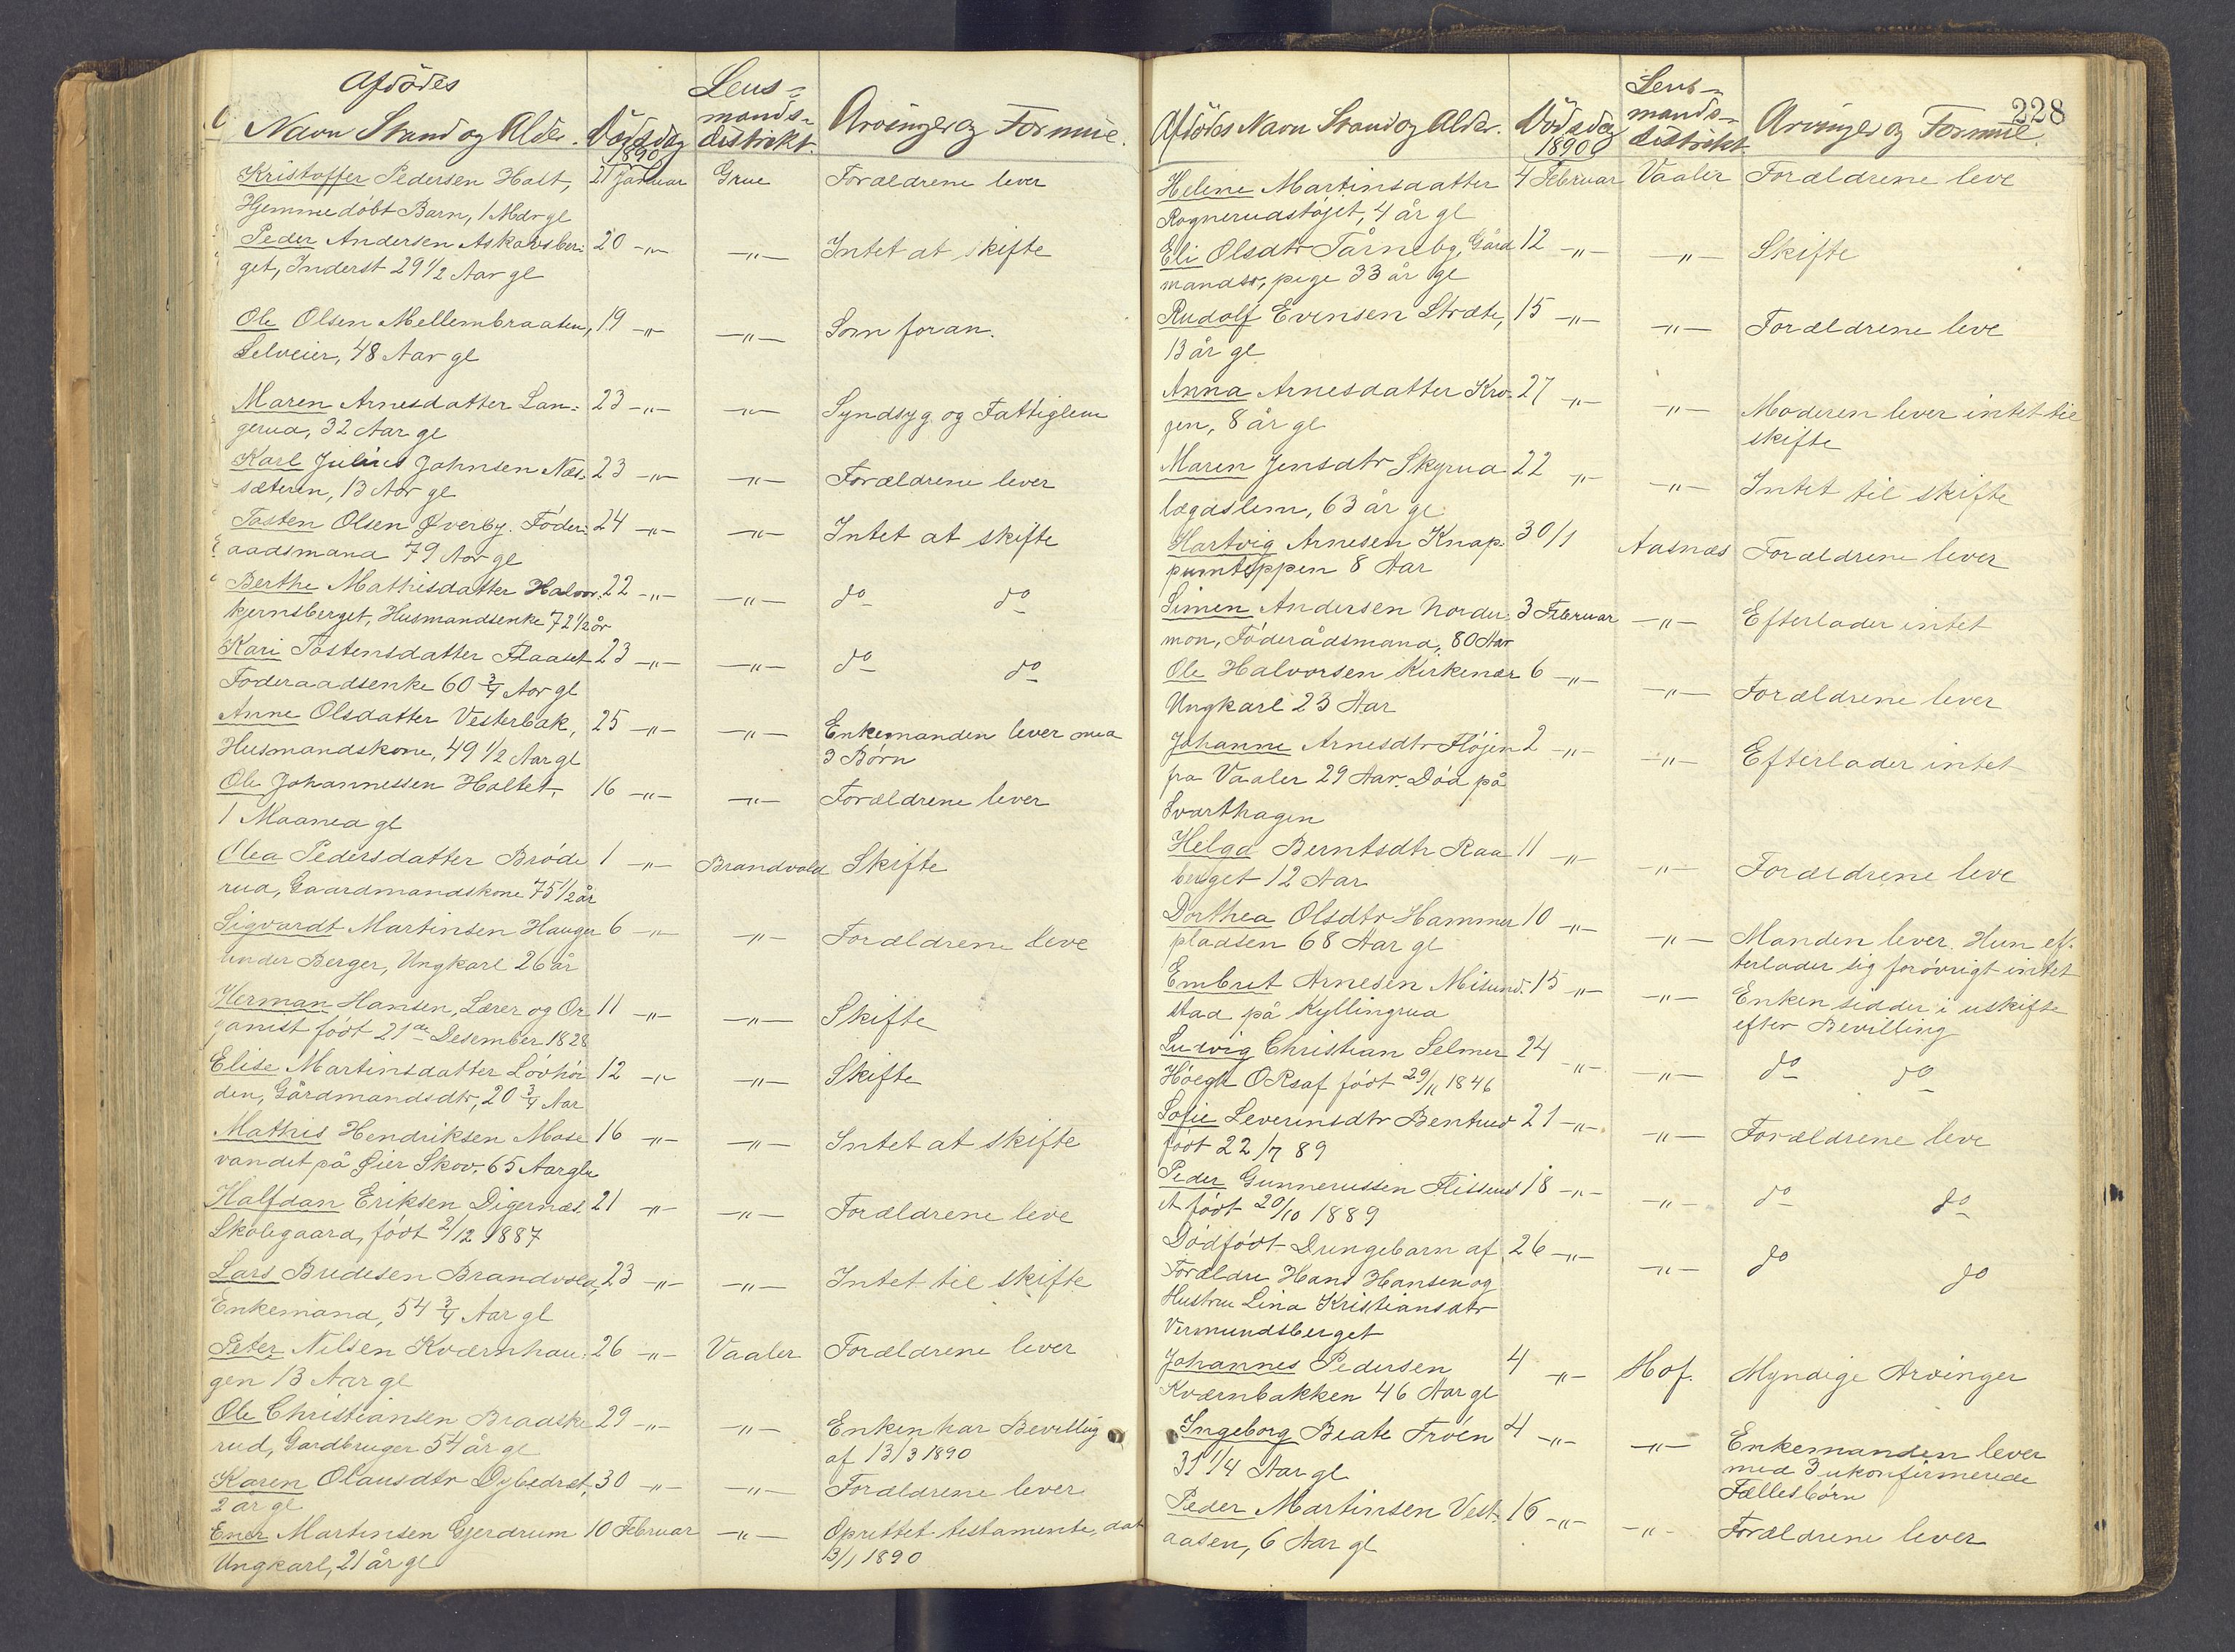 Afdödes
Navn Stand og Alder. Dödsdag 1890 Lens=mands=distrikt. Arvinger og Formue.
Kristoffer Pedersen Holt, 21 Januar Grue Forældrene lever
Hjemmedöbt Barn, 1 Mdr gl
Peder Andersen Askarsber= 20 -"- -"- Intet at skifte
get, Inderst 29 1/2 Aar gl
Ole Olsen Mellembraaten, 19 -"- -"- Som foran.
Selveier, 48 Aar gl
Maren Arnesdatter Lan= 23 -"- -"- Syndsyg og Fattiglem
gerud, 32 Aar gl
Karl Julius Johnsen Næs= 23 -"- -"- Forældrene lever
sæteren, 13 Aar gl
Tosten Olsen Øverby. Föder= 24 -"- -"- Intet at skifte
aadsmand 79 Aar gl
Berthe Mathisdatter Halvor= 22 -"- -"- do do
kjernsberget, Husmandsenke 72 1/2 år
Kari Tostensdatter Flaaset 23 -"- -"- do do
Föderaadsenke 60 3/4 Aar gl
Anne Olsdatter Vesterbak, 25 -"- -"- Enkemanden lever med
Husmandskone, 49 1/2 Aar gl 3 Börn
Ole Johannessen Holtet, 16 -"- -"- Forældrene lever
1 Maaned gl
Olea Pedersdatter Bröde 1 -"- Brandvold Skifte
rud, Gaardmandskone 75 1/2 år
Sigvardt Martinsen Hauger 6 -"- -"- Forældrene leve
under Berger, Ungkarl 26 år
Herman Hansen, Lærer og Or 11 -"- -"- Skifte
ganist född 21de Desember 1828
Elise Martinsdatter Lövhöi 12 -"- -"- Skifte
den, Gårdmandsdtr, 20 3/4 Aar
Mathis Hendriksen Mose 16 -"- -"- Intet at skifte
vandet på Øier Skov. 65 Aar gl
Halfdan Eriksen Digernæs 21 -"- -"- Forældrene leve
Skolegaard, född 2/12 1887
Lars Bredesen Brandvold, 23 -"- -"- Intet til skifte
Enkemand, 54 3/4 Aar gl
Peter Nilsen Kværnhau= 26 -"- Vaaler Forældrene lever
gen 13 Aar gl
Ole Christiansen Braaske 29 -"- -"- Enken har Bevilling
rud, Gardbruger 54 år gl af 13/3 1890
Karen Olausdtr 30 -"- -"- Forældrene lever
2 år gl
Ener Martinsen Gjerdrum 10 Februar -"- Oprettet testamente, dat
Ungkarl, 21 år gl 13/1 1890
228
Afdödes Navn Stand og Alder. Dödsdag 1890 Lens=mands=distrikt. Arvinger og Formue.
Helene Martinsdatter 4 Februar Vaaler Forældrene leve
Rognerudstöjet, 4 år gl
Eli Olsdtr Tårneby, Gård 12 -"- -"- Skifte
mandsr, pige 33 år gl
Rudolf Evensen Stræte, 15 -"- -"- Forældrene leve
13 år gl
Anna Arnesdatter Kro= 27 -"- -"- Moderen lever intet til
gen, 8 år gl skifte
Maren Jensdtr Skyrud 22 -"- -"- Intet til skifte
lægdslem, 63 år gl
Hartvig Arnesen Knap= 30/1 Aasnæs Forældrene lever
pumtöppen 8 Aar
Simen Andersen Norder= 3 Februar -"- Efterlader intet
mon, Föderådsmand, 80 Aar
Ole Halvorsen Kirkenær 6 -"- -"- Forældrene lever
Ungkarl 23 Aar
Johanne Arnesdtr Flöjen 2 -"- -"- Efterlader intet
fra Vaaler 29 Aar. Död på
Svarthagen
Helga Berntsdtr Raa 11 -"- -"- Forældrene leve
berget 12 Aar
Dorthea Olsdtr Hammer 10 -"- -"- Manden lever. Hun ef=
pladsen 68 Aar gl terlader sig forövrigt intet
Embret Arnesen Misund= 15 -"- -"- Enken sidder i uskifte
stad på Kyllingrud efter Bevilling
Ludvig Christian Selmer 24 -"- -"- do do
Höegh ORsaf född 29/11 1846
Sofie Severinsdtr Bentrud 21 -"- -"- Forældrene leve
född 22/7 89
Peder Gunnerussen Flissund 18 -"- -"- do do
et född 20/10 1889
Dödföd Drengebarn af 26 -"- -"- do do
Forældre Hans Hansen og
Hustru Lina Kristiansdtr
Vermundsberget
Johannes Pedersen 4 -"- Hof. Myndige Arvinger
Kværnbakken 46 Aar gl
Ingeborg Beate Tröen 4 -"- -"- Enkemanden lever
31 1/4 Aar gl med 3 ukonfirmerede
Fællesbörn
Peder Martinsen Vest= 16 -"- -"- Forældrene lever
aasen, 6 Aar gl